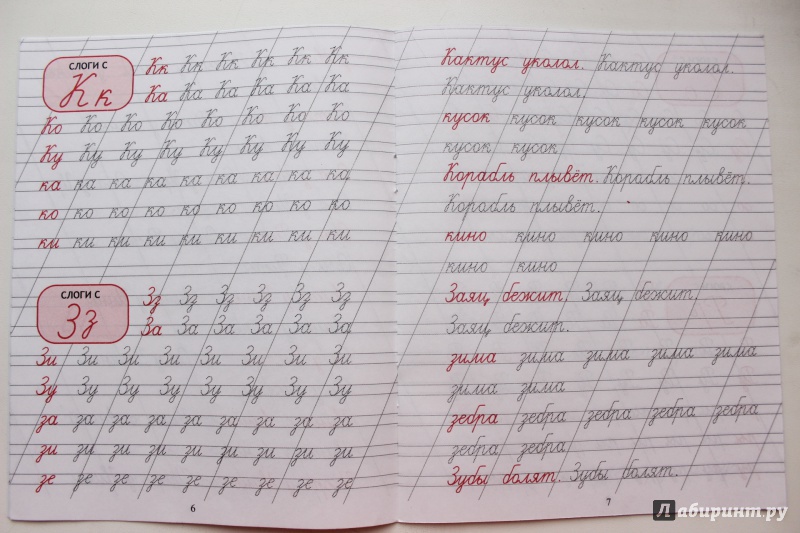 СЛОГИ С
К к
Кк Кк Кк Кк Кк Кк
Ка Ка Ка Ка Ка Ка
Ко Ко Ко Ко Ко Ко Ко Ко
Ку Ку Ку Ку Ку Ку Ку Ку
ка ка ка ка ка ка ка ка ка
ко ко ко ко ко ко ко ко ко
ки ки ки ки ки ки ки ки ки
СЛОГИ С
Зз
Зз Зз Зз Зз Зз Зз
За За За За За За
Зи Зи Зи Зи Зи Зи Зи Зи
Зу Зу Зу Зу Зу Зу Зу Зу
за за за за за за за за за
зи зи зи зи зи зи зи зи зи
зе зе зе зе зе зе зе зе зе
6
Кактус уколол. Кактус уколол.
Кактус уколол.
кусок кусок кусок кусок кусок
кусок кусок
Корабль плывёт. Корабль плывёт.
Корабль плывёт.
кино кино кино кино кино
кино кино
Заяц бежит. Заяц бежит.
Заяц бежит.
зима зима зима зима зима
зима зима
зебра зебра зебра зебра зебра
зебра зебра
Зубы болят. Зубы болят.
7
Лабиринт.ру